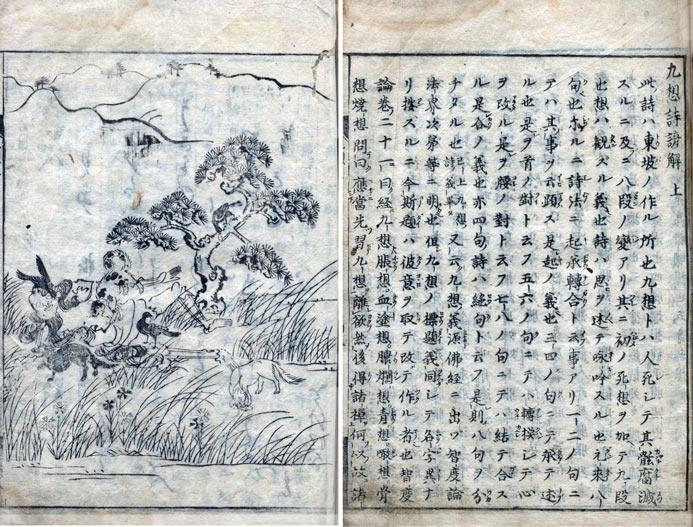 九想詩諺解 上
此詩ハ東坡ノ作ル所也九想トハ人死シテ其骸腐滅
スルニ及ニ八段ノ變アリ其ニ初ノ死想ヲ加テ九段
也想ハ觀スル義也詩ハ思ヲ述テ咏吟スル也元來八
句也ルニ詩法ニ起承轉合ト云事アリ一二ノ句ニ
テハ其事ヲ云顕ス是起ノ義也三四ノ句ニテ承テ述
ル也是ヲ胷ノ對ト云フ五六ノ句ニテハ轉換シテ心
ヲ改ル是ヲ腰ノ對ト云フ七八ノ句ニテハ結テ合ス
ル是合ノ義也亦四句ノ詩ハ絶句ト云フ是則八句ノ分
チタル也 又云九想義源佛經ニ出ヅ智度論
次第等ニ明也但九想ノ標題義同シテ各字異ナ
リスルニ今斯題ハ彼意ヲ取テ改テ作ル者也智度
論卷二十一曰經九想脹想血塗想膿爛想青想噉想骨
想燒想問曰應當先習九想離欲然後得諸禪何以故諸